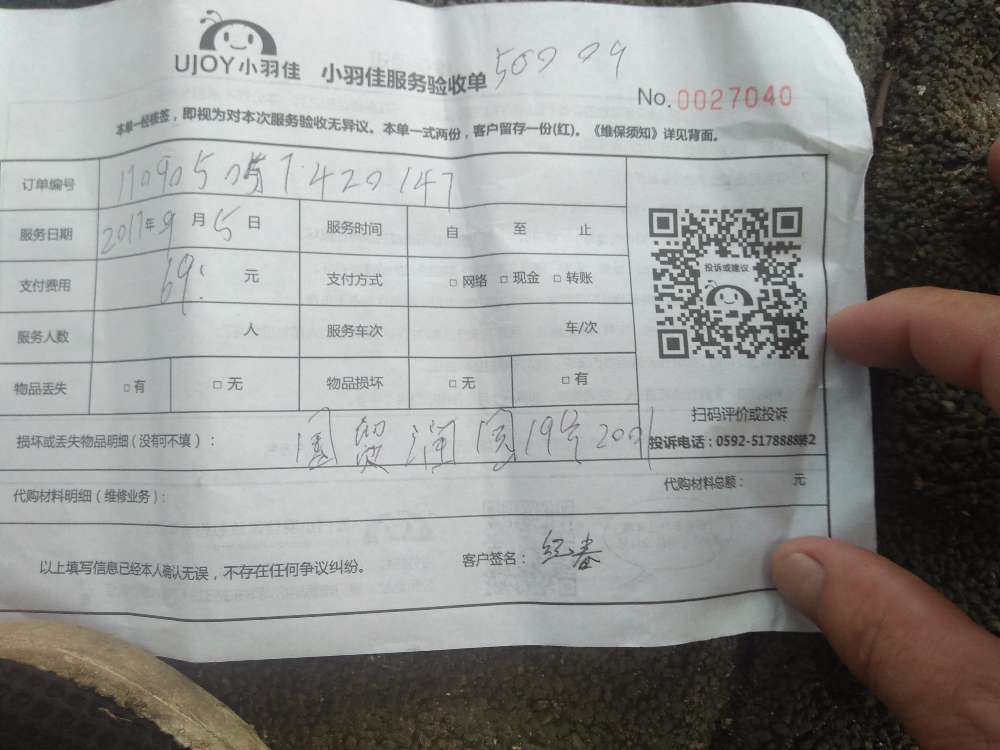 UJOY小羽佳 小羽佳服务验收单 50009
No.0027040
本单一经核签，即视为对本次服务验收无异议。本单一式两份，客户留存一份(红)。《维保须知》详见背面。
订单编号
服务日期 2017年9月5日 服务时间 自 至 止
投诉或建议
支付费用 69 元 支付方式 □网络 □现金 □转账
服务人数 人 服务车次 车/次
物品丢失 □有 □无 物品损坏 □无 □有
扫码评价或投诉
损坏或丢失物品明细（没有可不填）： 国贸润园19号2001
投诉电话：0592-5178888转2
代购材料明细（维修业务）： 代购材料总额： 元
以上填写信息已经本人确认无误，不存在任何争议纠纷。 客户签名：